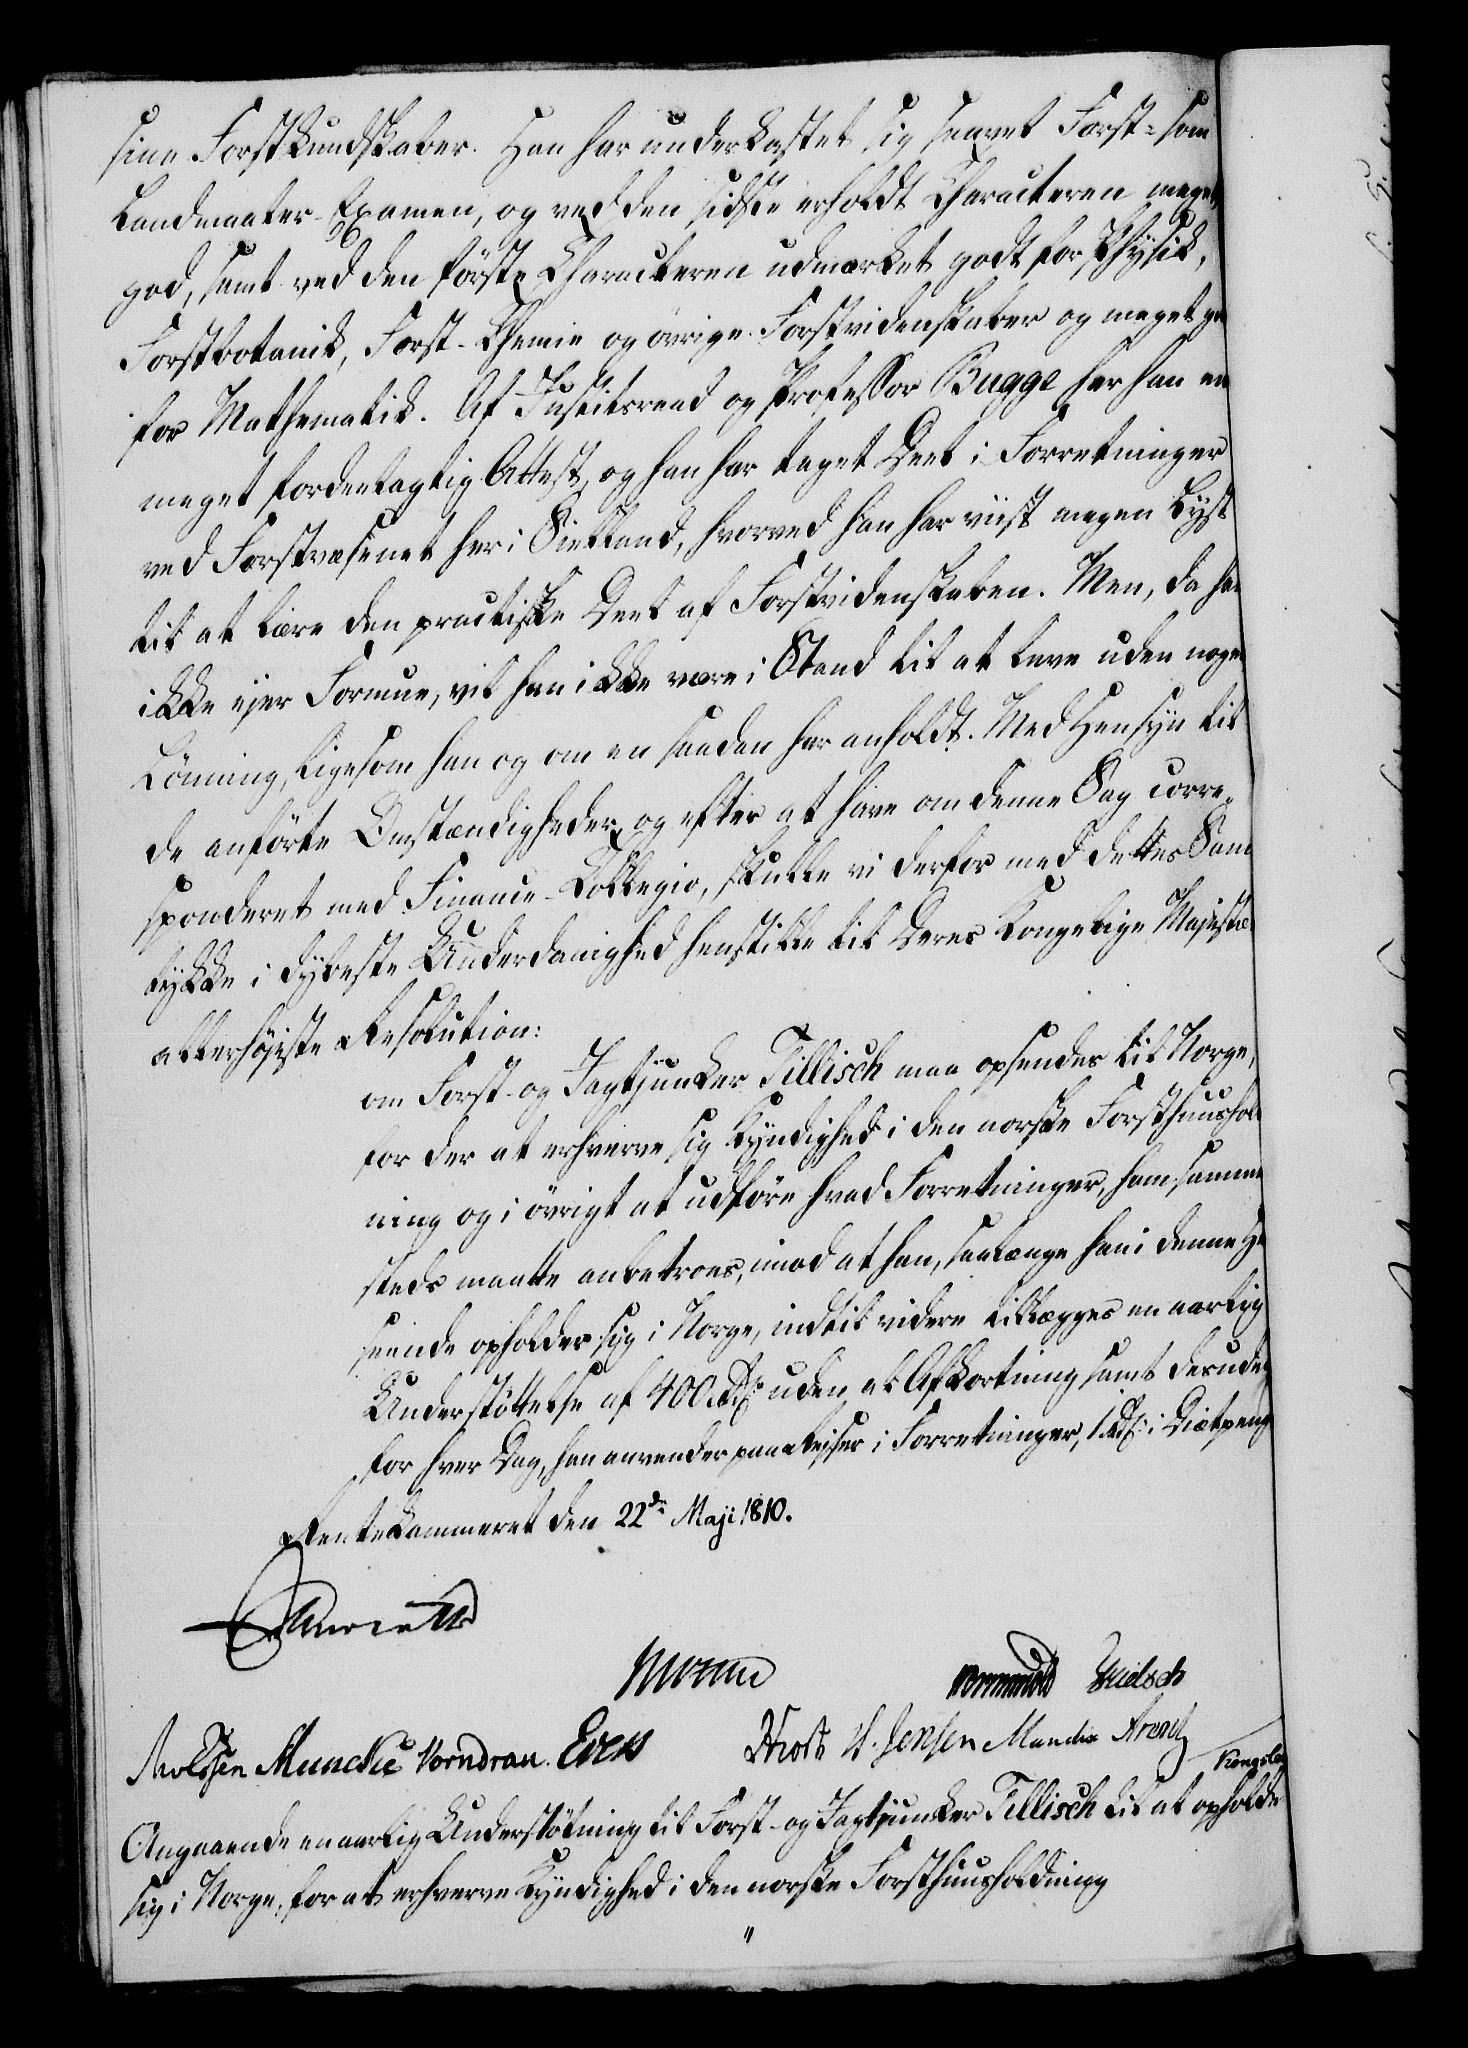 sine Forstkundskaber. Han har underkastet sig saavel Forst- som
Landmaaler-Examen, og ved den sidste erholdt Characteren meget
god, samt ved den förste Characteren udmærket godt for Physik,
Forstbotanik, Forst-Chemie og övrige Forstvidenskaber og meget
for Mathematik. Af Justitsraad og Professor Bugge har han en
meget fordeelagtig Attest, og han har taget Deel i Forretninger
ved Forstvæsenet her i Sielland, hvorved han har viist megen Lyst
til at lære den practiske Deel af Forstvidenskaben. Men, da han
ikke ejer Formue, vil han ikke være i Stand til at leve uden nogen
Lönning, ligesom han og om en saadan har anholdt. Med Hensyn til
de anförte Omstændigheder, og efter at have om denne Sag corre-
sponderet med Finance-Collegio, skulle vi derfor med dettes Sam
tykke i dybeste Underdanighed henstille til Deres Kongelige Majestæts
allerhöjeste Resolution:
om Forst- og Jagtjunker Tillisch maa opsendes til Norge,
for der at erhverve sig Kyndighed i den norske Forsthuushol-
ning og i övrigt at udföre hvad Forretninger, ham samme-
steds maatte anbetroes, imod at han, saalænge han i denne He
seende opholder sig i Norge, indtil videre tillægges en aarlig
Understöttelse af 400 Rdl. uden al Afkortning samt desuden
for hver Dag, han anvender paa Rejser i Forretninger, 1 Rdl. i Diætpenge
Rentekammeret den 22de Maji 1810.
Mourier
Wormskiold Kielsen
Knudsen Muncke Vorndran. Evers Schrodt H. Jensen Mandix Arentz
Kongslev
Angaaende en aarlig Understötning til Forst- og Jagtjunker Tillisch til at opholde
sig i Norge, for at erhverve Kyndighed i den norske Forsthuusholdning
"